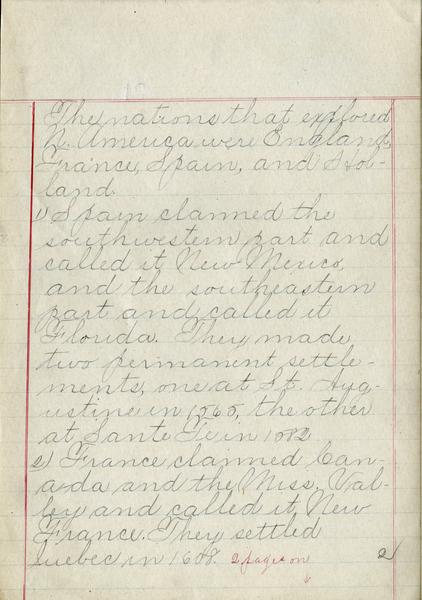 The nations that explored
N. America were England,
France, Spain, and Hol-
land.
1) Spain claimed the
southwestern part and
called it New Mexico,
and the southeastern
part and called it
Florida. They made
two permanent settle-
ments, one at St. Aug-
ustine in 1565, the other
at Sante Fe in 1582
2) France claimed Can-
ada and the Miss. Val-
ley and called it New
France. They settled
Quebec in 1608. 2 pages on
2